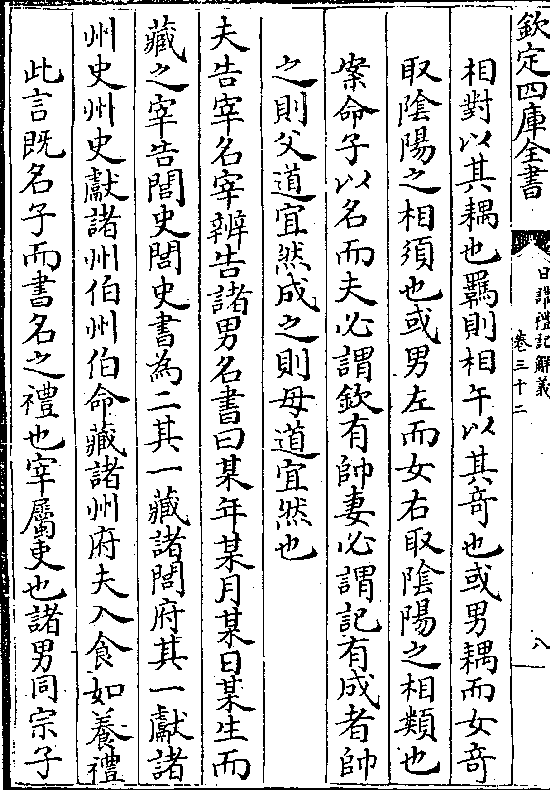 欽定四庫全書
日講禮記解義
卷三十二
八
相對以其耦也羈則相午以其竒也或男耦而女竒
取陰陽之相須也或男左而女右取陰陽之相類也
案命子以名而夫必謂欽有帥妻必謂記有成者帥
之則父道宜然成之則母道宜然也
夫告宰名宰辨告諸男名書曰某年某月某日某生而
藏之宰告閭史閭史書為二其一藏諸閭府其一獻諸
州史州史獻諸州伯州伯命藏諸州府夫入食如養禮
此言既名子而書名之禮也宰屬吏也諸男同宗子